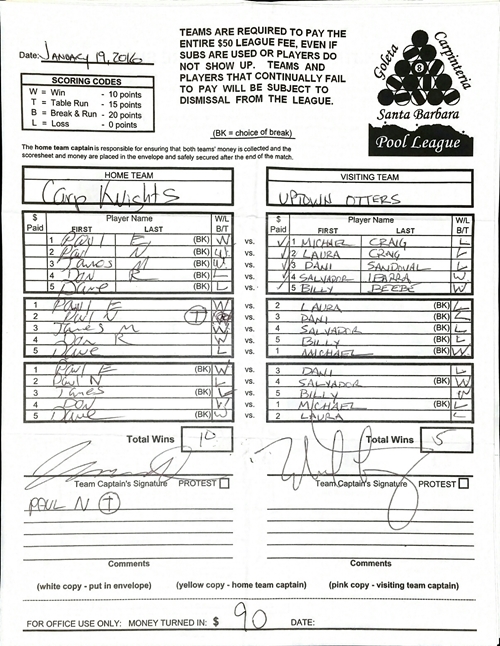 Date: JANUARY 19, 2016
TEAMS ARE REQUIRED TO PAY THE
ENTIRE $50 LEAGUE FEE, EVEN IF
SUBS ARE USED OR PLAYERS DO
NOT SHOW UP. TEAMS AND
PLAYERS THAT CONTINUALLY FAIL
TO PAY WILL BE SUBJECT TO
DISMISSAL FROM THE LEAGUE.
Goleta
Carpinteria
8
Santa Barbara
Pool League
SCORING CODES
W = Win - 10 points
T = Table Run - 15 points
B = Break & Run - 20 points
L = Loss - 0 points
(BK = choice of break)
The home team captain is responsible for ensuring that both teams' money is collected and the
scoresheet and money are placed in the envelope and safely secured after the end of the match.
HOME TEAM
Carp Knights
$ Paid Player Name W/L
FIRST LAST B/T
1 Paul E (BK) W vs.
2 Paul N (BK) vs.
3 James (BK) vs.
4 Don R (BK) L vs.
5 Dave (BK) L vs.
1 Paul E W vs.
2 Paul N (T) vs.
3 James M W vs.
4 Don R W vs.
5 Dave L vs.
1 Paul E (BK) W vs.
2 Paul N L vs.
3 James (BK) L vs.
4 Don vs.
5 Dave (BK) W vs.
Total Wins 10
Team Captain's Signature PROTEST
PAUL N (T)
Comments
VISITING TEAM
UPTOWN OTTERS
$ Paid Player Name W/L
FIRST LAST B/T
1 MICHAEL CRAIG L
2 LAURA CRAIG L
3 DANI SANDOVAL L
4 SALVADOR IBARRA W
5 BILLY BEEBE W
2 LAURA (BK) L
3 DANI (BK) L
4 SALVADOR (BK) L
5 BILLY (BK) L
1 MICHAEL (BK) W
3 DANI L
4 SALVADOR (BK) W
5 BILLY W
1 MICHAEL (BK) L
2 LAURA L
Total Wins 5
Team Captain's Signature PROTEST
Comments
(white copy - put in envelope) (yellow copy - home team captain) (pink copy - visiting team captain)
FOR OFFICE USE ONLY: MONEY TURNED IN: $ 90 DATE: